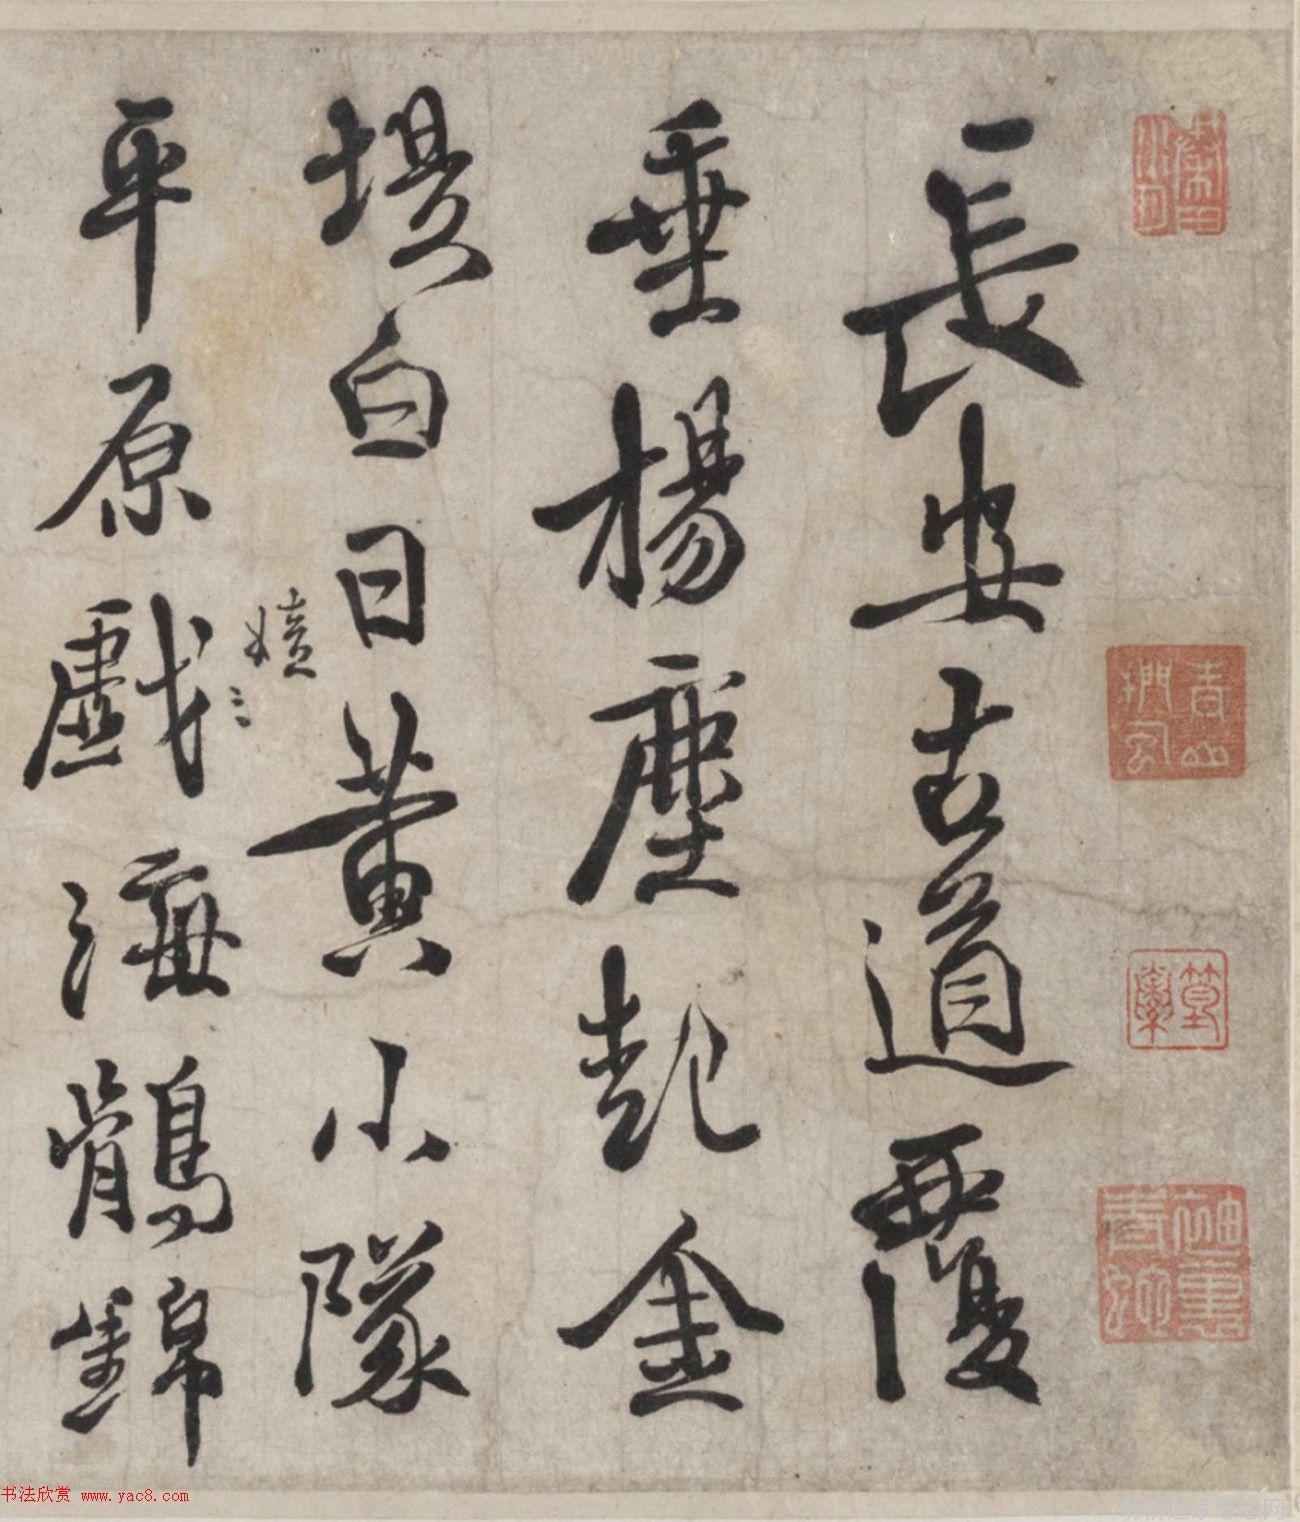 長安古道覆
垂楊塵起金
堤白日黄小隊
嬉
平原戲海鶻錦
书法欣赏 www.yac8.com